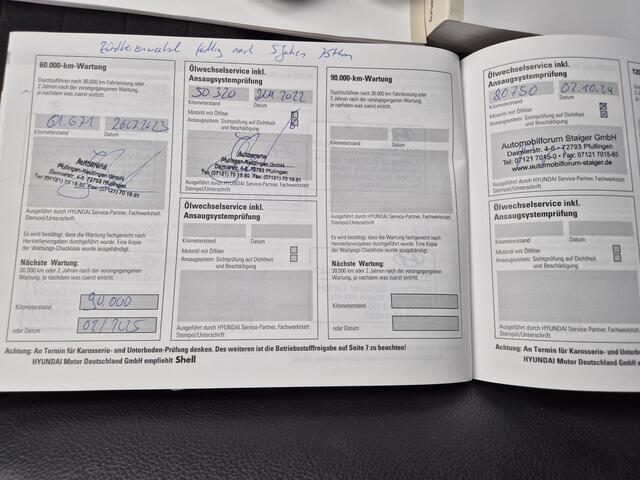 fällig nach 5 Jahren 75tkm
60.000-km-Wartung
Durchzuführen nach 30.000 km Fahrleistung oder
2 Jahren nach der vorangegangenen Wartung,
je nachdem was zuerst eintritt.
61.671
Kilometerstand
Datum
Autoarena
Pfullingen-Reutlingen GmbH
Daimlerstr. 4-6 · 72793 Pfullingen
Ausgeführt durch HYUNDAI Service-Partner, Fachwerkstatt
Stempel/Unterschrift
Es wird bestätigt, dass die Wartung fachgerecht nach
Herstellervorgaben durchgeführt wurde. Eine Kopie
der Wartungs-Checkliste wurde ausgehändigt.
Nächste Wartung:
30.000 km oder 2 Jahren nach der vorangegangenen
Wartung, je nachdem was zuerst eintritt.
Kilometerstand
90.000
oder Datum
02/2025
Ölwechselservice inkl.
Ansaugsystemprüfung
50 320
Kilometerstand
Datum
Motoröl mit Ölfilter
Ansaugsystem: Sichtprüfung auf Dichtheit
und Beschädigung
Autoarena
Pfullingen-Reutlingen GmbH
Daimlerstr. 4-6 · 72793 Pfullingen
Ausgeführt durch HYUNDAI Service-Partner, Fachwerkstatt
Stempel/Unterschrift
Ölwechselservice inkl.
Ansaugsystemprüfung
Kilometerstand
Datum
Motoröl mit Ölfilter
Ansaugsystem: Sichtprüfung auf Dichtheit
und Beschädigung
Ausgeführt durch HYUNDAI Service-Partner, Fachwerkstatt
Stempel/Unterschrift
90.000-km-Wartung
Durchzuführen nach 30.000 km Fahrleistung oder
2 Jahren nach der vorangegangenen Wartung,
je nachdem was zuerst eintritt.
Kilometerstand
Datum
Ausgeführt durch HYUNDAI Service-Partner, Fachwerkstatt
Stempel/Unterschrift
Es wird bestätigt, dass die Wartung fachgerecht nach
Herstellervorgaben durchgeführt wurde. Eine Kopie
der Wartungs-Checkliste wurde ausgehändigt.
Nächste Wartung:
30.000 km oder 2 Jahren nach der vorangegangenen
Wartung, je nachdem was zuerst eintritt.
Kilometerstand
oder Datum
Achtung: An Termin für Karosserie- und Unterboden-Prüfung denken. Des weiteren ist die Betriebsstofffreigabe auf Seite 7 zu beachten!
HYUNDAI Motor Deutschland GmbH empfiehlt Shell
Ölwechselservice inkl.
Ansaugsystemprüfung
80750
02.10.24
Kilometerstand
Datum
Motoröl mit Ölfilter
Ansaugsystem: Sichtprüfung auf Dichtheit
und Beschädigung
Automobilforum Staiger GmbH
Daimlerstr. 4-6 · 72793 Pfullingen
www.automobilforum-staiger.de
Ausgeführt durch HYUNDAI Service-Partner, Fachwerkstatt
Stempel/Unterschrift
Ölwechselservice inkl.
Ansaugsystemprüfung
Kilometerstand
Datum
Motoröl mit Ölfilter
Ansaugsystem: Sichtprüfung auf Dichtheit
und Beschädigung
Ausgeführt durch HYUNDAI Service-Partner, Fachwerkstatt
Stempel/Unterschrift
Achtung: An Termin für Karosserie- und Unterboden-
HYUNDAI Motor Deutschland GmbH